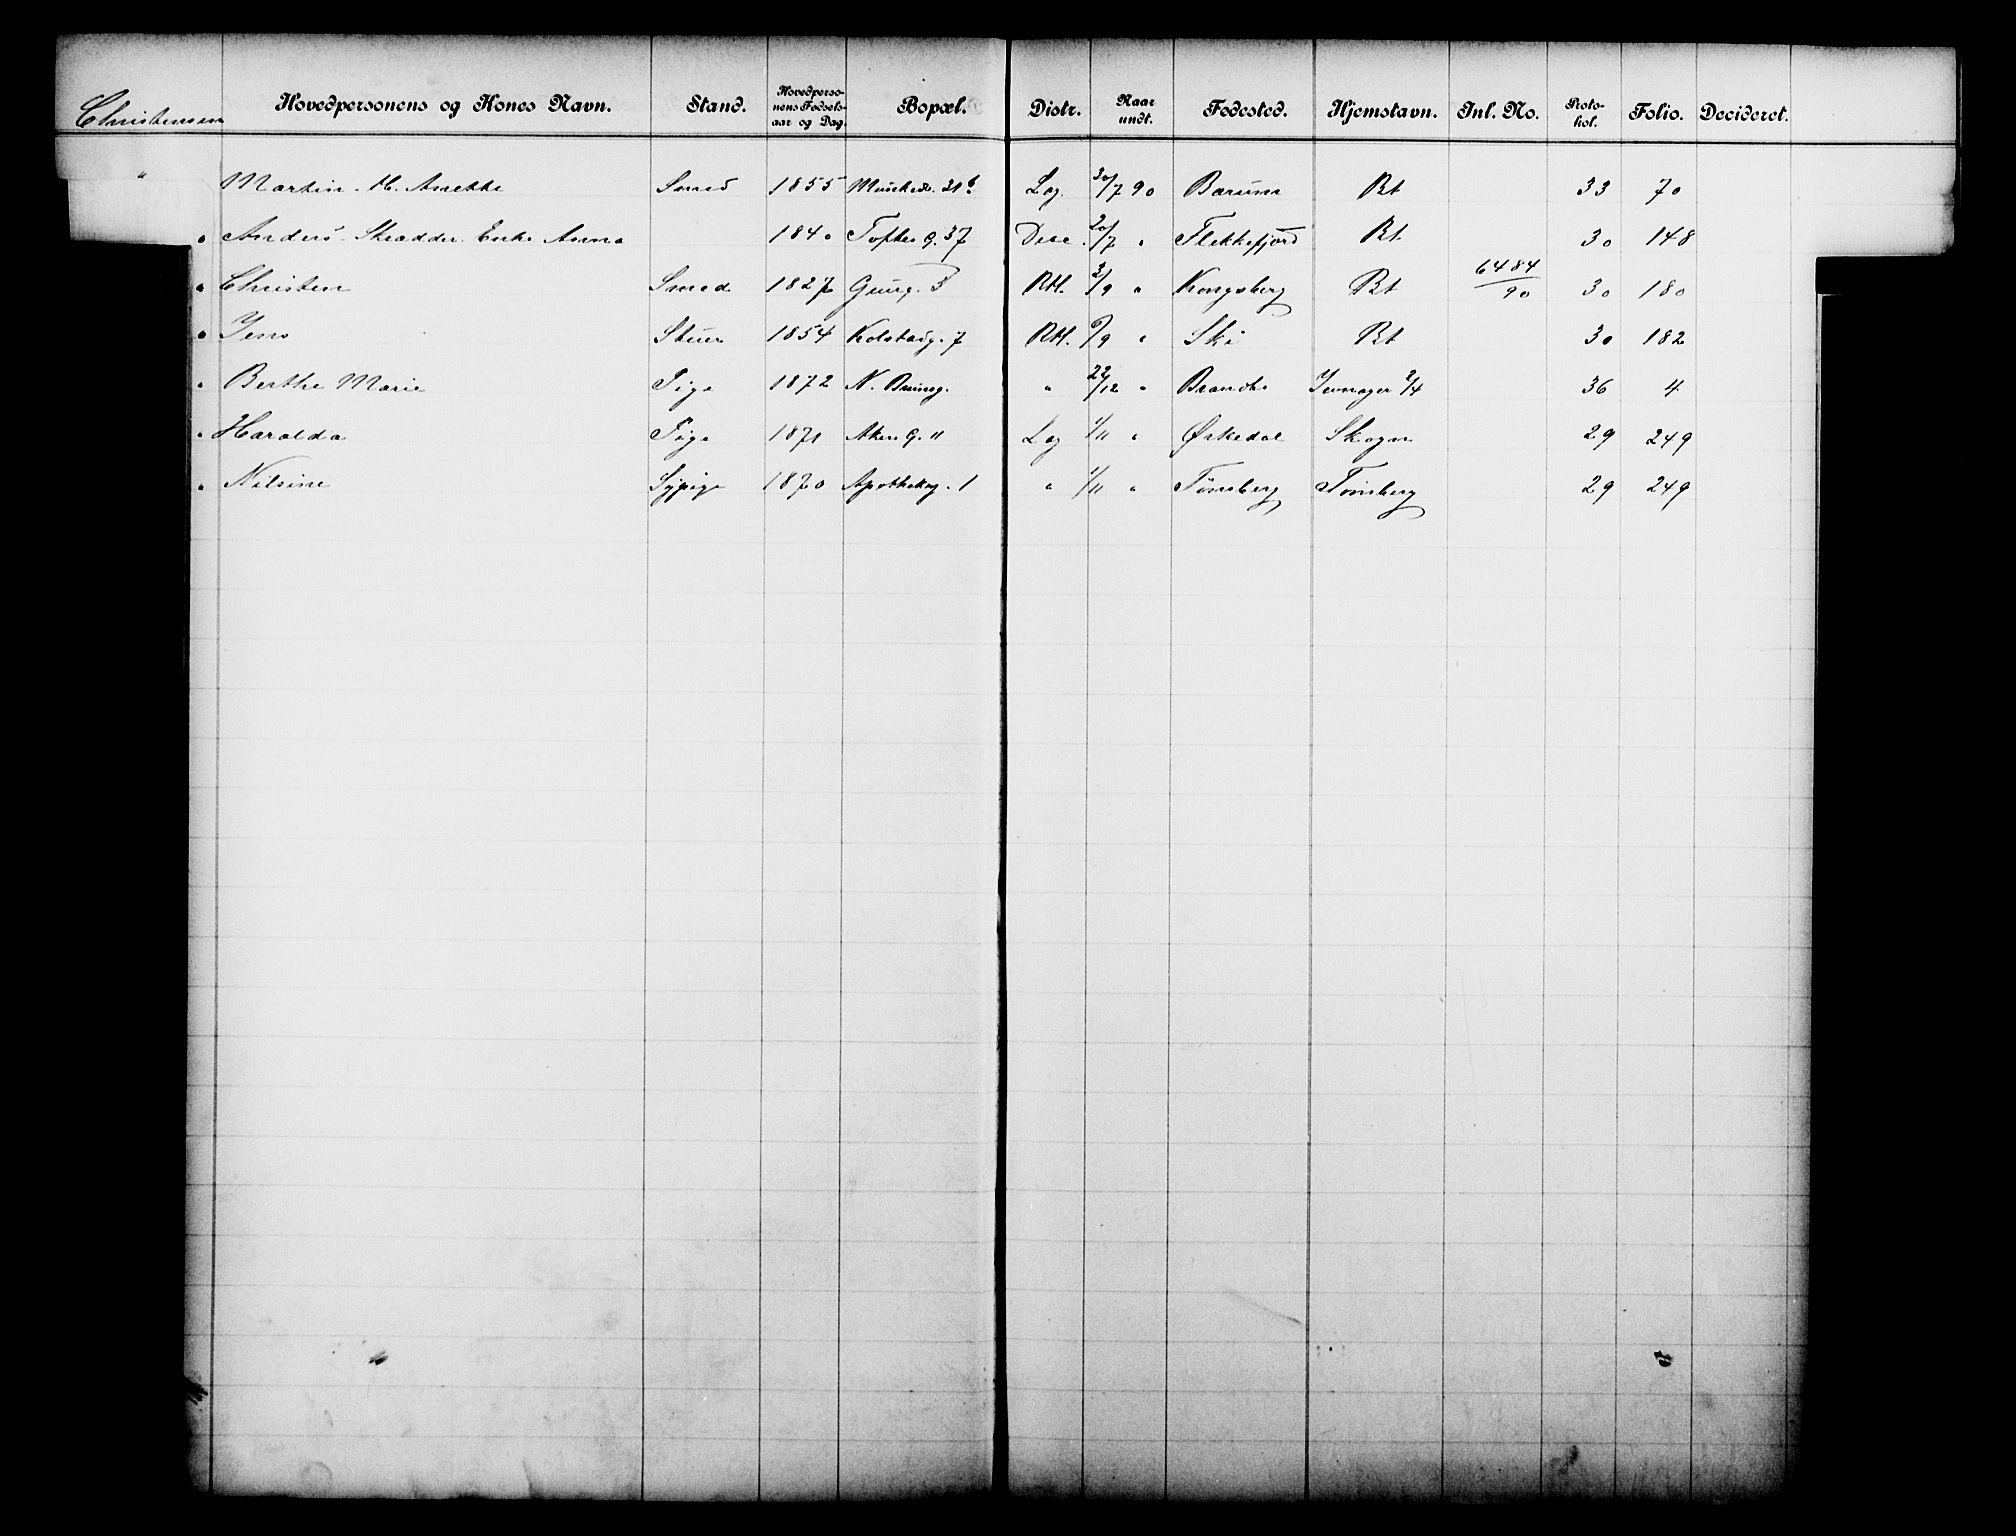 Christensen Hovedpersonens og Kones Navn. Stand. Hovedperso-nens Fødsels-aar og Dag. Bopæl. Distr. Naar undt. Fødested. Hjemstavn. Inl. No. Proto-kol. Folio. Decideret.
" Martin. H. Anette Smed 1855 31 b Lag. 30/7 90 Bærum Bt 33 70
" Anders Skrædder Enke Anna 1840 Toftes G. 37 Disc. 20/7 " Flekkefjord Bt 30 148
" Christen Smed 1827 3 RH. 3/9 " Kongsberg Bt 6484/90 30 180
" Jens 1854 Kolstadg. 7 RH. 6/9 " Ski Bt 30 182
" Berthe Marie Pige 1872 N. " 22/12 " Brandbo Jevnager 2/4 36 4
" Haralda Pige 1871 Akers G. 11 Lag 1/11 " Ørkedal Skogn 29 249
" Nilsine Sypige 1870 Apothekerg. 1 " 1/11 " Tønsberg Tønsberg 29 249